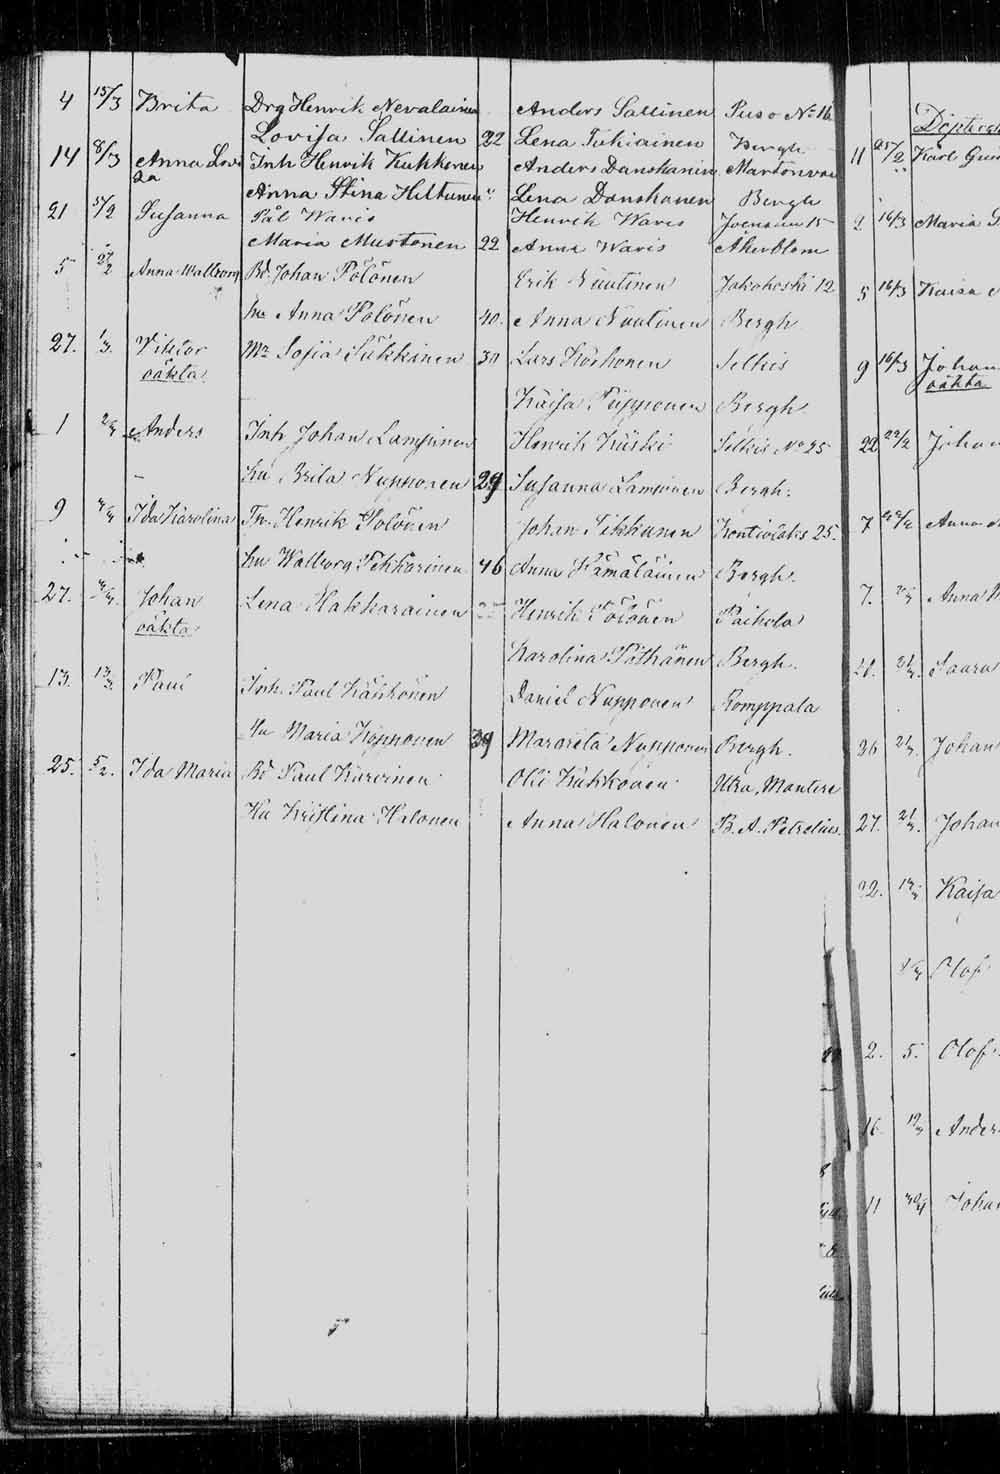 4 15/3 Brita Drg Henrik Nevalainen Anders Sallinen Puso No 16
Lovisa Sallinen 22 Lena Tukiainen Bergh
14 8/3 Anna Lovi Inh Henrik Kukkonen Anders Danskanin Martonvaa
sa Anna Stina Hiltunen " Lena Danskanen Bergh
21 5/2 Susanna Pål Waris Henrik Waris Joensuu 15
Maria Mustonen 22 Anna Waris Åkerblom
5 27/2 Anna Walborg Bd. Johan Pölönen Erik Nuutinen Jakokoski 12
hu Anna Pölönen 40. Anna Nuutinen Bergh
27. 1/3. Viktor Mr Sofia Sükkinen 30 Lars Körhonen Selkis
oäkta Kaisa Piipponen Bergh
1 Anders Inh Johan Lampinen Henrik Kiiski Selkis No 25
hu Brita Nupponen 29 Susanna Lampinen Bergh.
9 Ida Karolina Tn. Henrik Pölönen Johan Tikkanen Kontiolaks 25.
hu Walborg Pekkarinen 46 Anna Hämäläinen Bergh.
27. Johan Lena Hakkarainen Henrik Pölönen Paihola
oäkta Karolina Pöthänen Bergh.
13. 13/3. Paul Inh. Paul Kähkönen Daniel Nupponen Romppala
Hu Maria Kopponen 39 Margreta Nupponen Bergh.
25. 5/2. Ida Maria Bd Paul Karvinen Olli Kukkonen Utra, Mantere
Hu Kristina Halonen Anna Halonen B. A. Petrelius.
11 25/2 Karl Gus
2 16/3 Maria
5 16/3 Kaisa
9 16/3 Johan
oäkta
22 22/2 Johan
7 Anna
7. Anna
21. Saara
36 Johan
27. Johan
22. Kaisa
Olof
2. 5. Olof
16 Ander
11 Johan